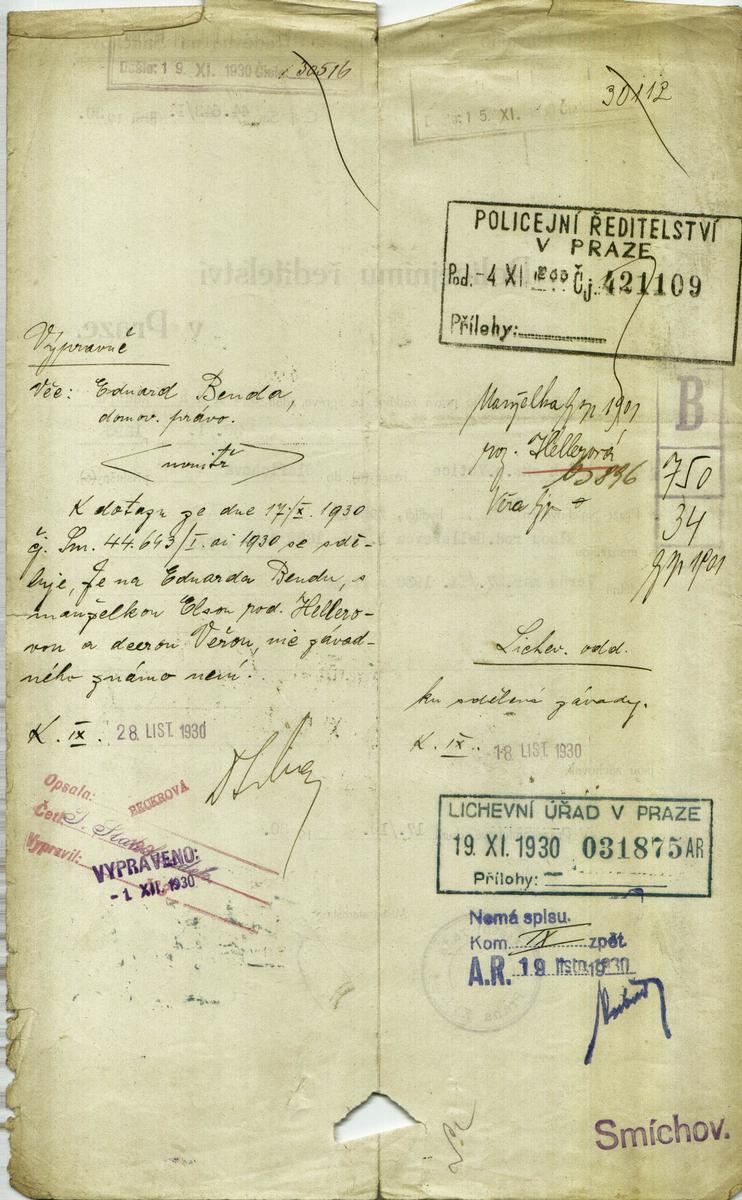 Došlo: 19. XI. 1930 Číslo 30516
Vypravně
Věc: Eduard Benda,
domov. právo.
K dotazu ze dne 17/X. 1930
čj. Sm. 44.643/I. ai 1930 se sdě-
luje, že na Eduarda Bendu, s
manželkou Elsou rod. Hellero-
vou a dcerou Věrou, nic závad-
ného známo není.
K. IX. 28 LIST. 1930
Opsala: BECKROVÁ
Četl:
Vypravil:
VYPRAVENO:
-1. XII. 1930
30112
15. XI.
POLICEJNÍ ŘEDITELSTVÍ
V PRAZE
Pod. -4 XI Čj. 421109
Přílohy:
Manželka 1901
roz. Hellerová
Věra
B
750
34
1901
Lichev. odd.
ku sdělení závady.
K. IX. 18 LIST. 1930
LICHEVNÍ ÚŘAD V PRAZE
19. XI. 1930 031875 AR
Přílohy:
Nemá spisu.
Kom. IX zpět.
A.R. 19 listp. 1930
Smíchov.